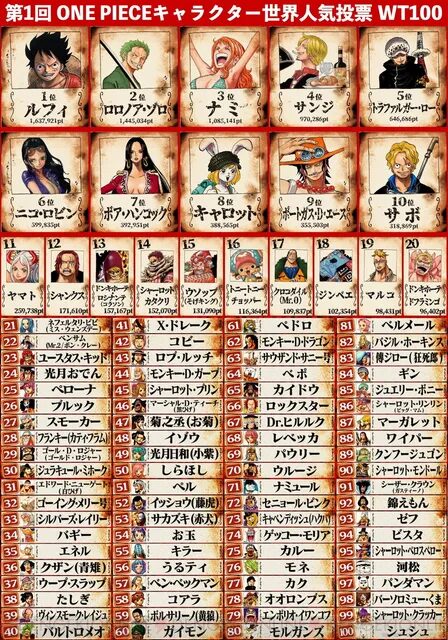 第1回 ONE PIECEキャラクター世界人気投票 WT100
1位
ルフィ
1,637,921pt
2位
ロロノア・ゾロ
1,445,034pt
3位
ナミ
1,085,141pt
4位
サンジ
970,286pt
5位
トラファルガー・ロー
646,686pt
6位
ニコ・ロビン
599,835pt
7位
ボア・ハンコック
392,951pt
8位
キャロット
388,565pt
9位
ポートガス・D・エース
355,503pt
10位
サボ
318,869pt
11
ヤマト
259,738pt
12
シャンクス
171,610pt
13
ドンキホーテ・ロシナンテ
(コラソン)
157,167pt
14
シャーロット・カタクリ
152,070pt
15
ウソップ
(そげキング)
131,090pt
16
トニートニー・チョッパー
116,364pt
17
クロコダイル
(Mr.0)
109,837pt
18
ジンベエ
102,354pt
19
マルコ
98,431pt
20
ドンキホーテ・ドフラミンゴ
96,402pt
21 ネフェルタリ・ビビ
(ミス・ウェンズデー)
22 ベンサム
(Mr.2 ボン・クレー)
23 ユースタス・キッド
24 光月おでん
25 ペローナ
26 ブルック
27 スモーカー
28 フランキー(カティ・フラム)
29 ゴール・D・ロジャー
(ゴールド・ロジャー)
30 ジュラキュール・ミホーク
31 エドワード・ニューゲート
(白ひげ)
32 ゴーイング・メリー号
33 シルバーズ・レイリー
34 バギー
35 エネル
36 クザン(青雉)
37 ウープ・スラップ
38 たしぎ
39 ヴィンスモーク・レイジュ
40 バルトロメオ
41 X・ドレーク
42 コビー
43 ロブ・ルッチ
44 モンキー・D・ガープ
45 シャーロット・プリン
46 マーシャル・D・ティーチ
(黒ひげ)
47 菊之丞(お菊)
48 イゾウ
49 光月日和(小紫)
50 しらほし
51 ベル
52 イッショウ(藤虎)
53 サカズキ(赤犬)
54 お玉
55 キラー
56 うるティ
57 ベン・ベックマン
58 コアラ
59 ボルサリーノ(黄猿)
60 ガイモン
61 ペドロ
62 モンキー・D・ドラゴン
63 サウザンド・サニー号
64 ベポ
65 カイドウ
66 ロックスター
67 Dr.ヒルルク
68 レベッカ
69 パウリー
70 ウルージ
71 ナミュール
72 セニョール・ピンク
73 キャベンディッシュ(ハクバ)
74 ゲッコー・モリア
75 カルー
76 モネ
77 カク
78 オオロンブス
79 エンポリオ・イワンコフ
80 モルガンズ
81 ベルメール
82 バジル・ホーキンス
83 傳ジロー(狂死郎)
84 ギン
85 ジュエリー・ボニー
86 シャーロット・リンリン
(ビッグ・マム)
87 マーガレット
88 ワイパー
89 クンフージュゴン
90 シャーロット・モンドール
91 シーザー・クラウン
(ガスティーノ)
92 錦えもん
93 ゼフ
94 ビスタ
95 シャーロット・ペロスペロー
96 河松
97 パンダマン
98 バーソロミュー・くま
99 シャーロット・ブリュレ
100 シュシュ